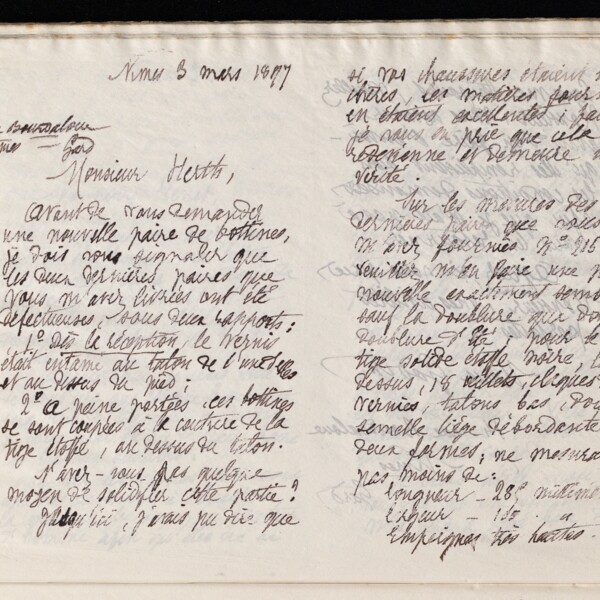 Nimes 3 mars 1897
Gard
Monsieur Herth,
Avant de vous demander
une nouvelle paire de bottines,
je dois vous signaler que
les deux dernières paires que
vous m'avez livrées ont été
défectueuses, sous deux rapports :
1º Dès la réception, le vernis
était entamé au talon de l'une d'elles
et au dessus du pied ;
2º A peine portées, ces bottines
se sont coupées à la couture de la
tige étoffe, au dessus du talon.
N'avez-vous pas quelque
moyen de solidifier cette partie ?
Jusqu'ici, j'avais pu dire que
si vos chaussures étaient
chères, les matières
en étaient excellentes ;
je vous en prie que cela
redevienne et demeure
vérité.
Sur les mesures des
dernières paires que vous
m'avez fournies nº 916
veuillez m'en faire une
nouvelle exactement
sauf la doublure que
doublure d'été ; pour le
tige solide étoffe noire,
dessus, 18 œillets, claques
vernies, talons bas,
semelle liège débordante
deux formes ; ne
pas moins de :
Longueur - 285
Largeur - "
Empeignes très hautes.